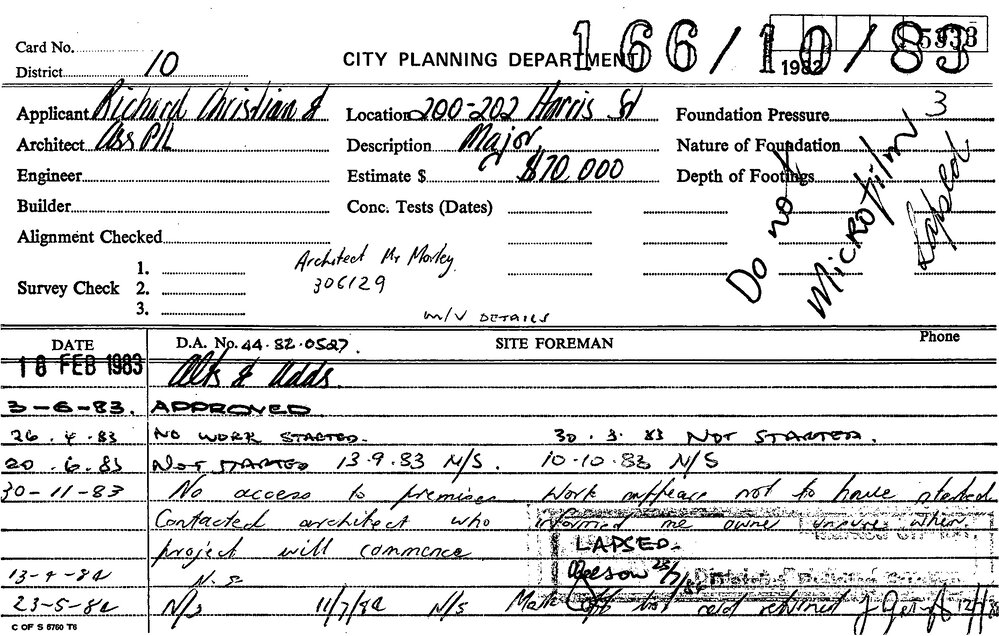 166/10/83
5933
1982
Card No.
District 10
CITY PLANNING DEPARTMENT
Applicant Richard Christian &
Location 200-202 Harris St
Foundation Pressure 3
Architect Ass P/L
Description Major
Nature of Foundation
Engineer
Estimate $ $70,000
Depth of Footings
Builder
Conc. Tests (Dates)
Do not Microfilm
Lapsed
Alignment Checked
Architect Mr Morley
306129
Survey Check 1.
2.
3.
M/V DETAILS
DATE
D.A. No. 44.82.0527.
SITE FOREMAN
Phone
18 FEB 1983 Alts & Adds.
3-6-83. APPROVED
26.4.83 NO WORK STARTED. 30.3.83 NOT STARTED.
20.6.83 NOT STARTED 13.9.83 N/S. 10-10-83 N/S
30-11-83 No access to premises work appears not to have started
Contacted architect who informed me owner unsure when
project will commence
LAPSED.
13-4-84 N.S
23-5-84 N/S 11/7/84 N/S
C OF S 6760 T6